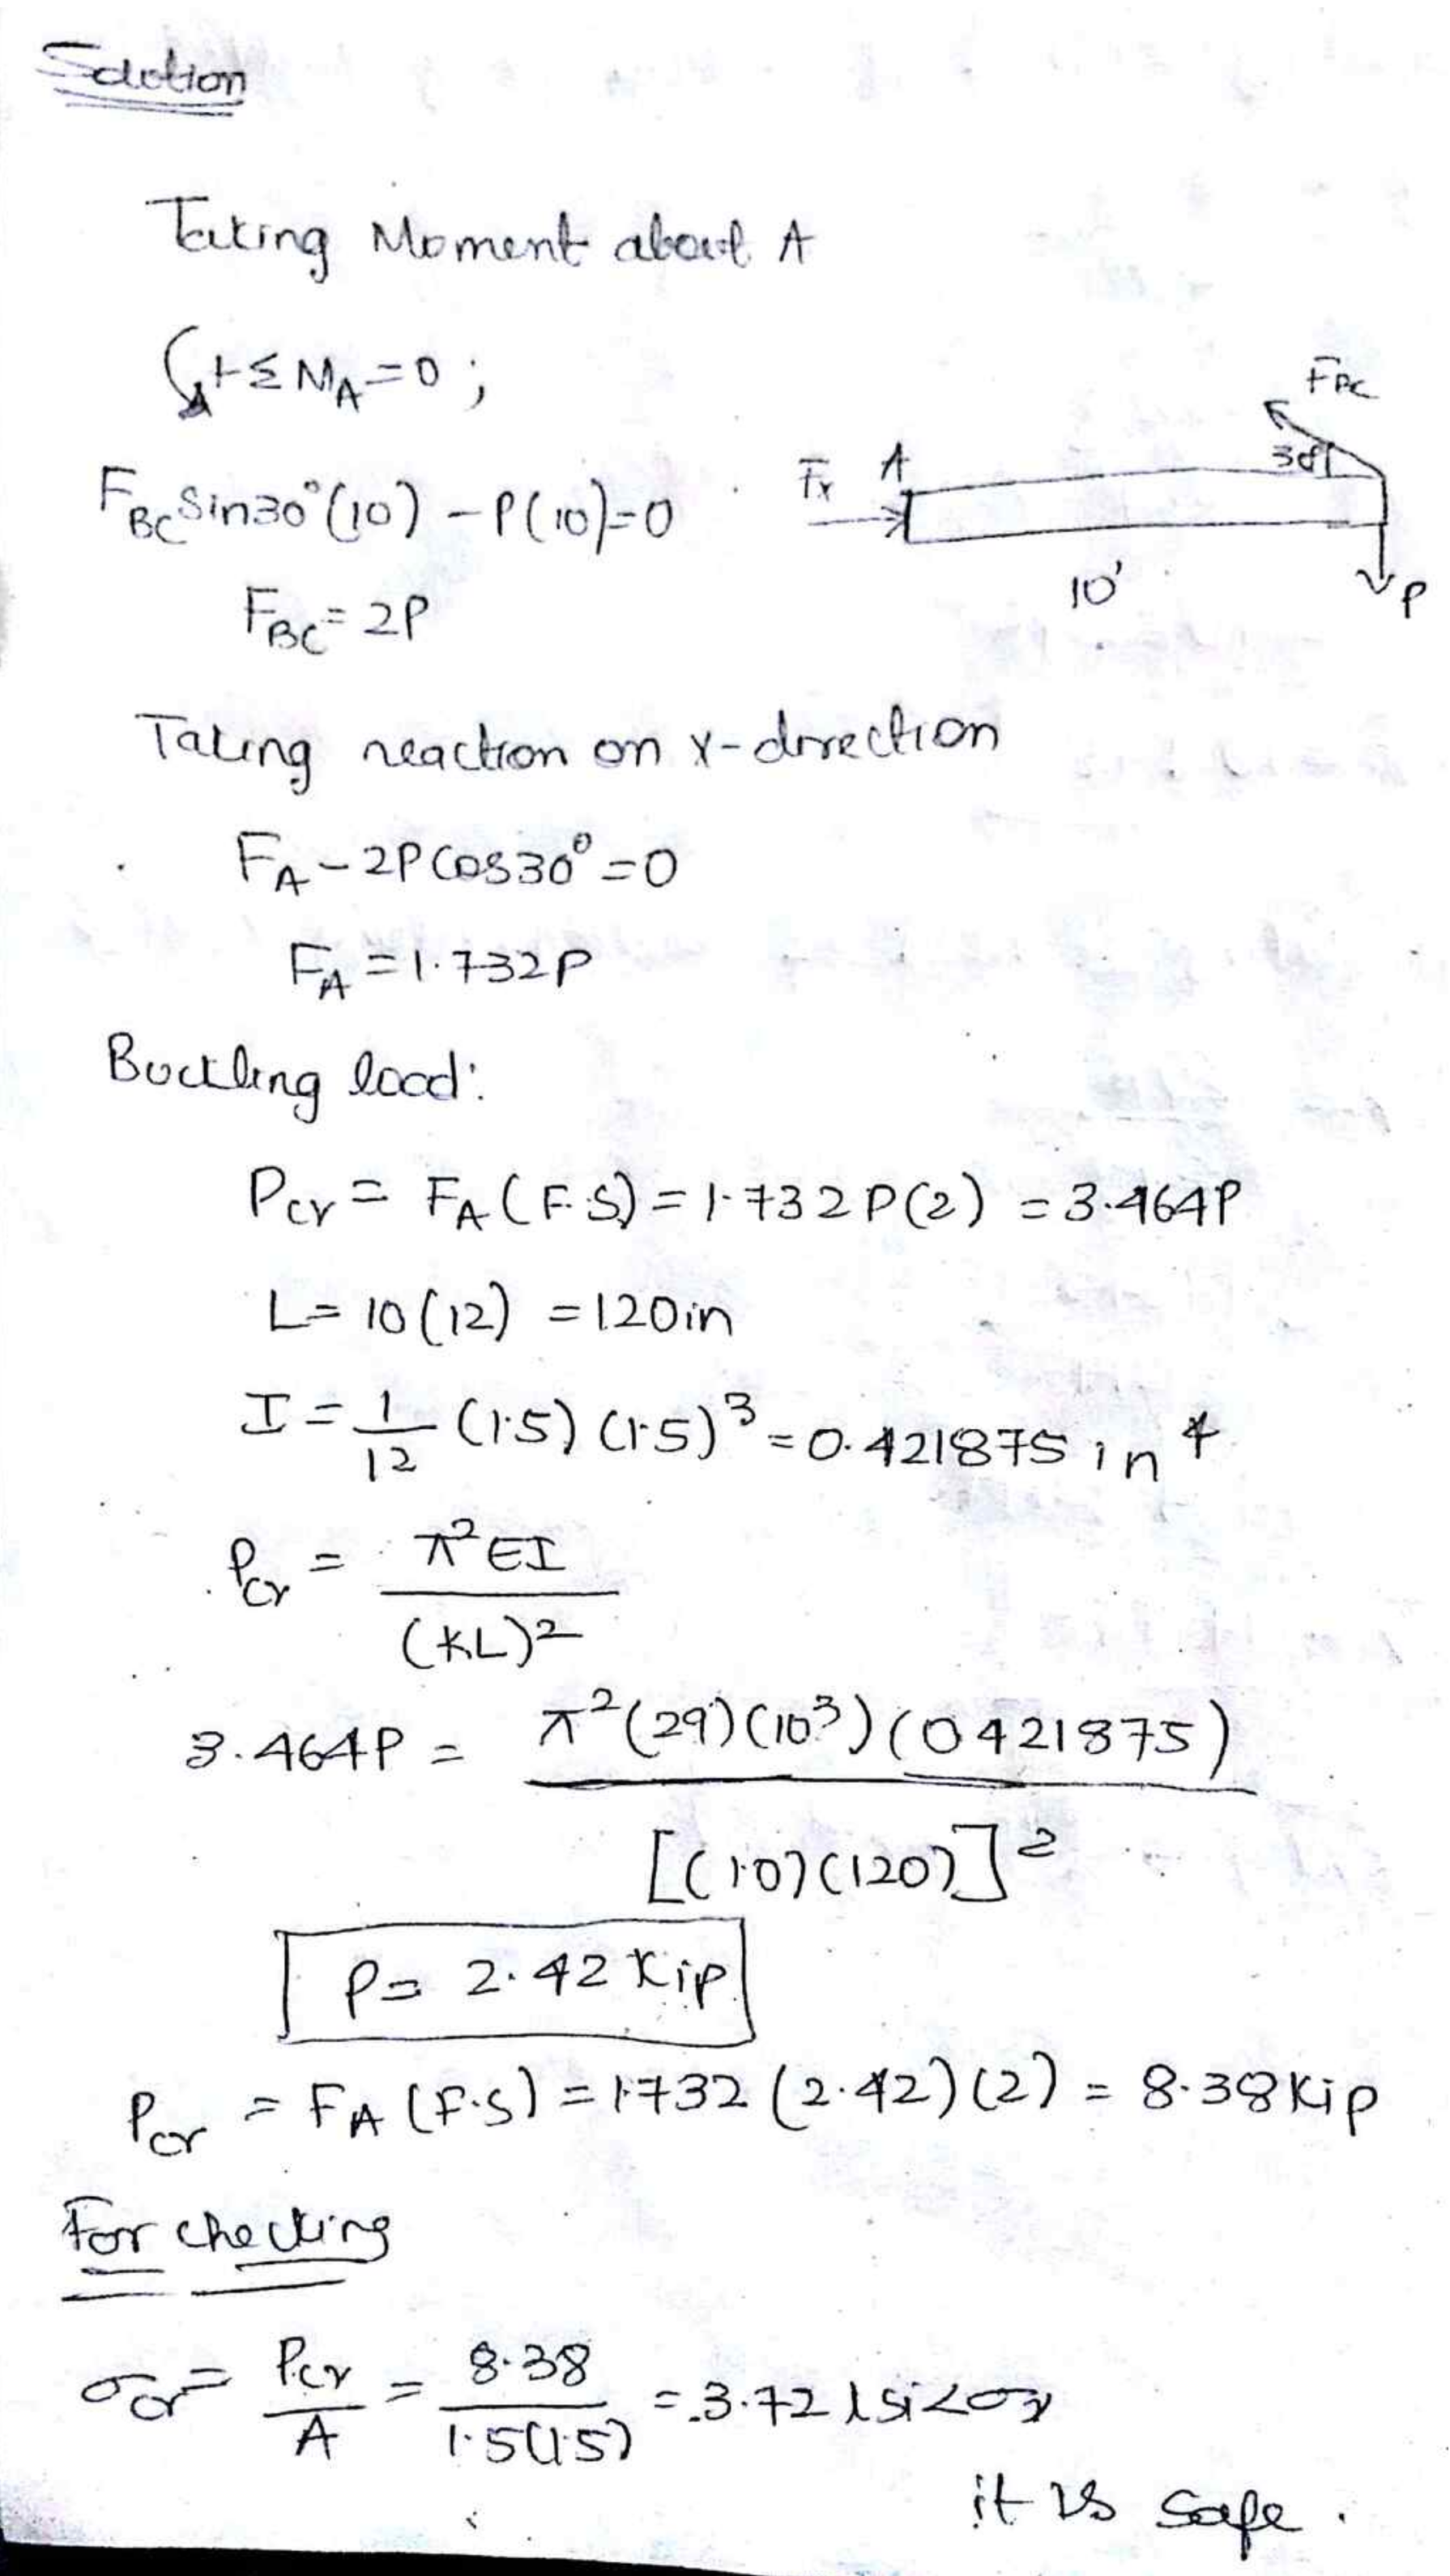 Solution
Taking Moment about A
↺+ΣM_A=0;
F_BC Sin30°(10) - P(10)=0
F_BC = 2P
F_BC
30°
F_x
A
10'
P
Taking reaction on x-direction
F_A - 2P Cos30° = 0
F_A = 1.732P
Buckling load:
P_cr = F_A (F.S) = 1.732P(2) = 3.464P
L = 10(12) = 120in
I = 1/12 (1.5) (1.5)³ = 0.421875 in⁴
P_cr = π²EI / (KL)²
3.464P = π²(29)(10³)(0.421875) / [(1.0)(120)]²
P = 2.42 Kip
P_cr = F_A (F.S) = 1.732 (2.42)(2) = 8.38 Kip
For checking
σ_cr = P_cr / A = 8.38 / 1.5(1.5) = 3.72 ksi < σ_y
it is safe.